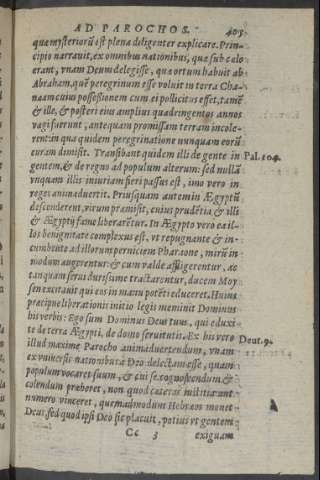 AD PAROCHOS. 405
quæ mysteriorū est plena deligenter explicare. Prin-
cipio narrauit, ex omnibus nationibus, quæ sub cælo
erant, vnam Deum delegisse, qua ortum habuit ab
Abraham, quē peregrinum esse voluit in terra Cha-
naam cuius possessionem cum ei pollicitus esset, tamē
& ille, & posteri eius amplius quadringentos annos
vagi fuerunt, antequam promissam terram incole-
rent: in qua quidem peregrinatione nunquam eorū
curam dimisit. Transibant quidem illi de gente in Psal. 104.
gentem, & de regno ad populum alterum: sed nullā
vnquam illis iniuriam fieri passus est, imo vero in
reges animaduertit. Priusquam autem in Ægyptū
descenderent, virum præmisit, cuius prudētia & illi
& Ægyptij fame liberarētur. In Ægypto vero ea il-
los benignitate complexus est, vt repugnante & in-
cumbente ad illorum perniciem Pharaone, mirū in
modum augerentur: & cum valde affligerentur, ac
tanquam serui durissime tractarentur, ducem Moy
sen excitauit qui eos in manu potēti educeret. Huius
præcipue liberationis initio legis meminit Dominus
his verbis: Ego sum Dominus Deus tuus, qui eduxi
te de terra Ægypti, de domo seruitutis. Ex his vero Deut. 9.
illud maxime Parocho animaduertendum, vnam
ex vniuersis nationibus a Deo delectam esse, quam
populum vocaret suum, & cui se cognoscendum &
colendum præberet, non quod cæteras iustitia aut
numero vinceret, quemadmodum Hebræos monet
Deus, sed quod ipsi Deo sic placuit, potius vt gentem
Cc 3 exiguam